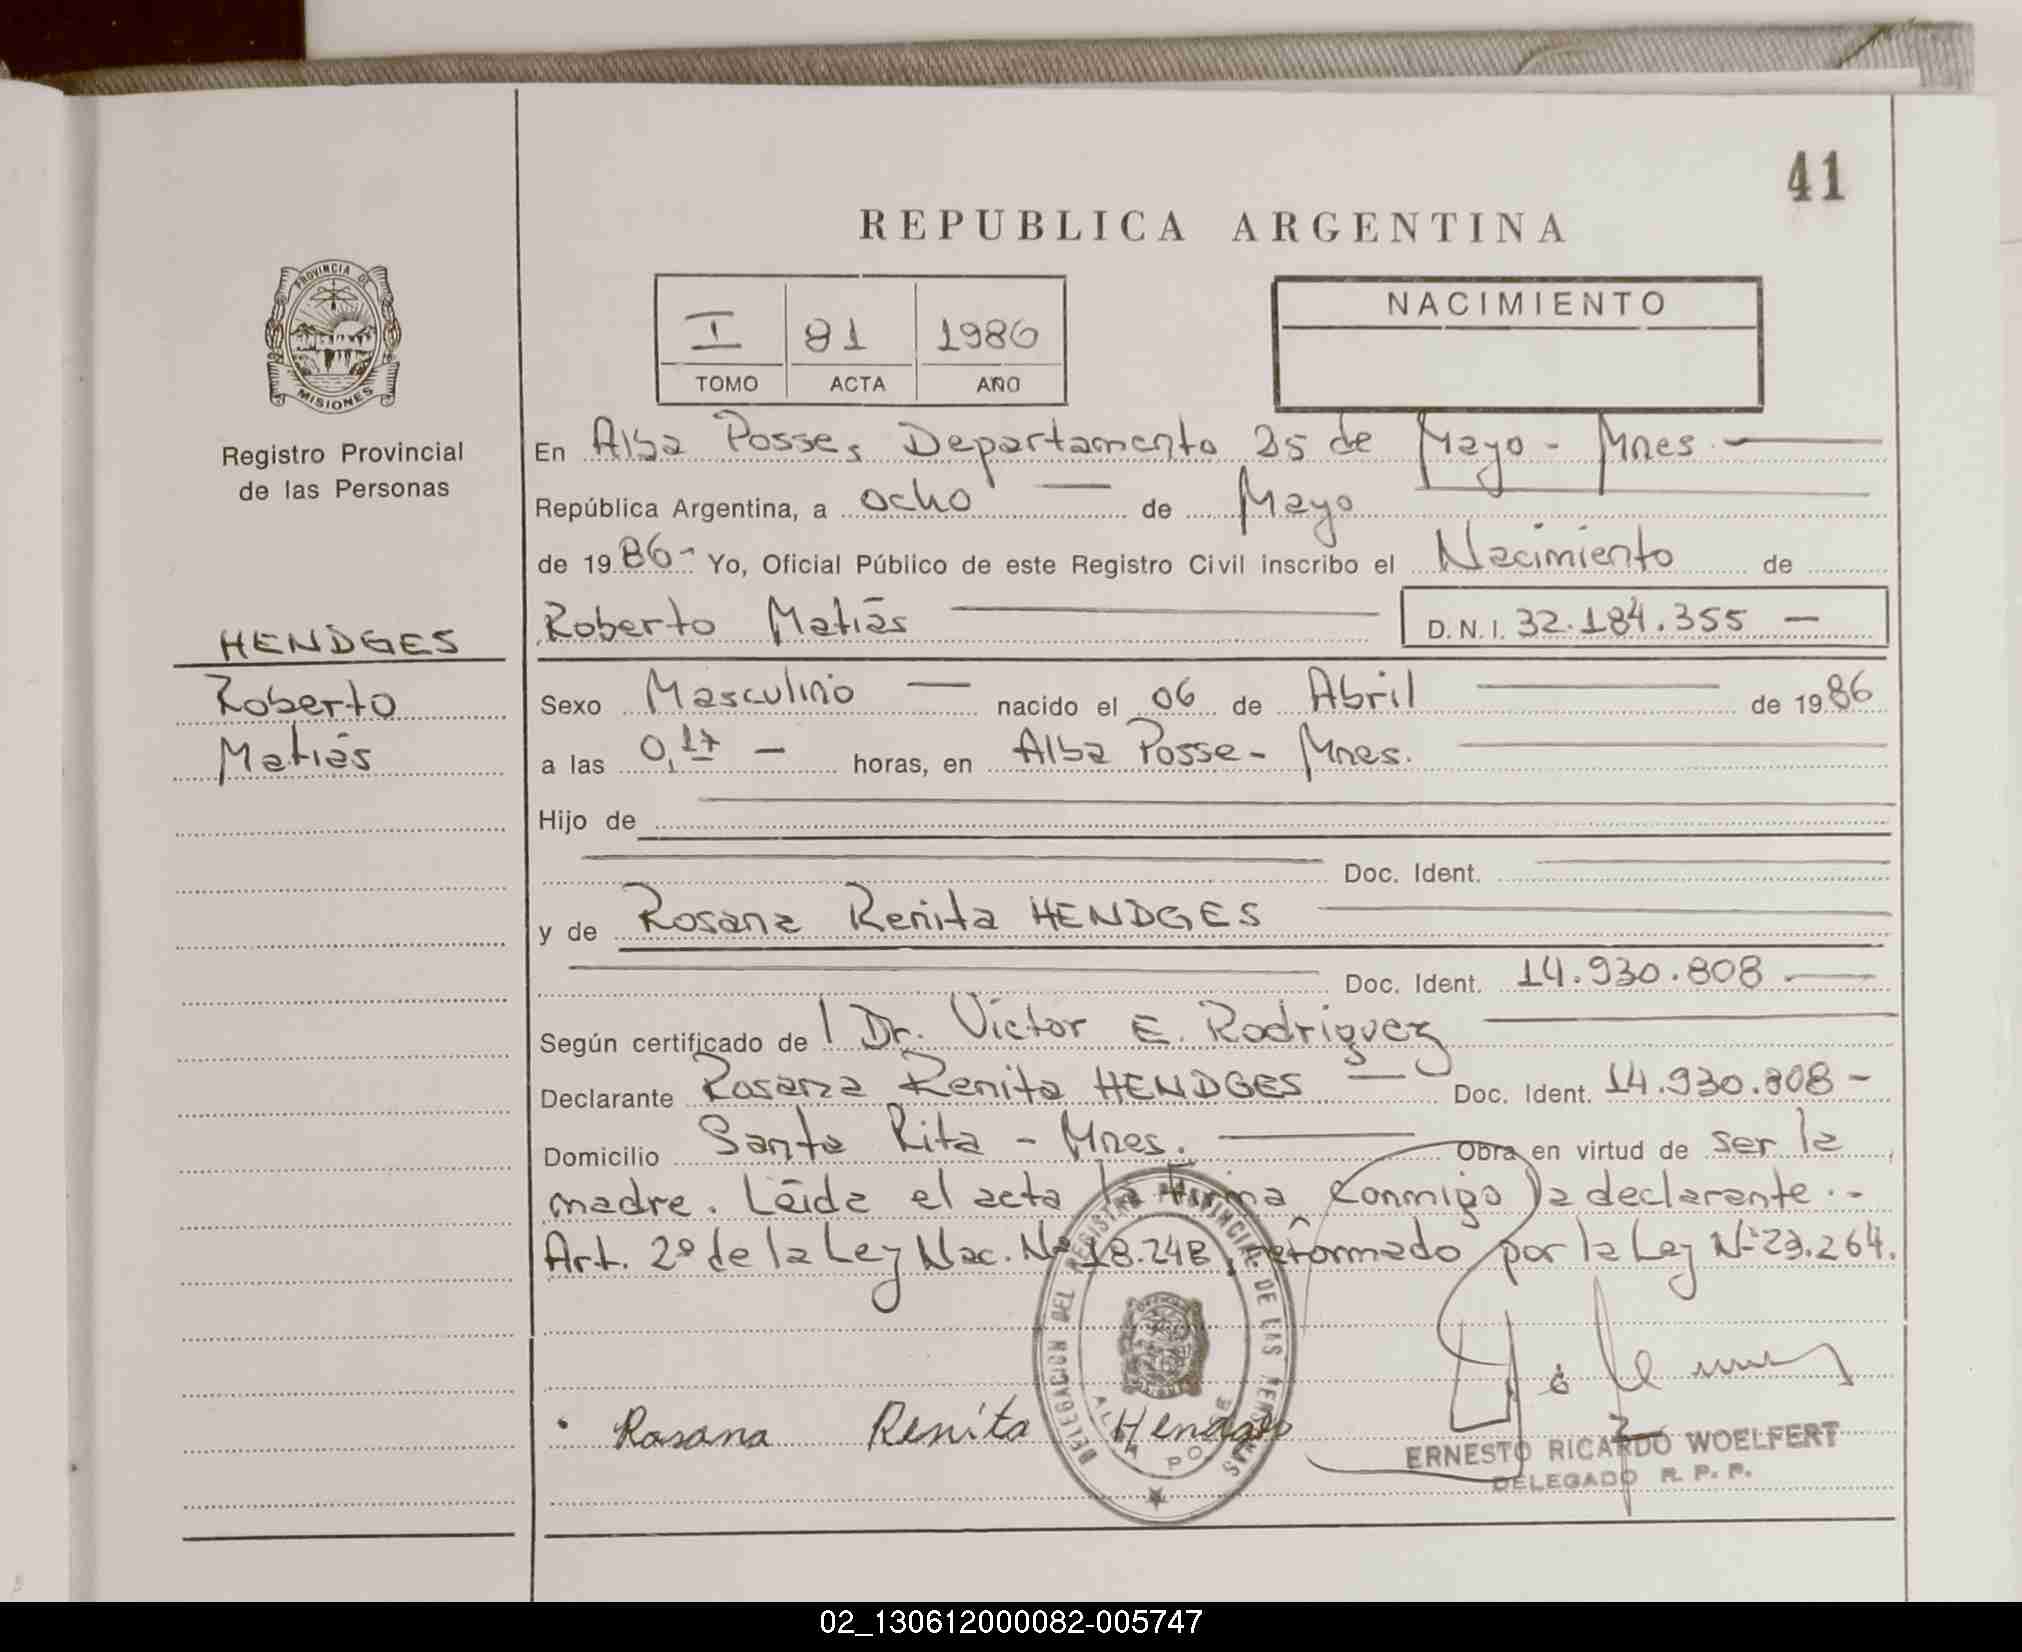 41
REPUBLICA ARGENTINA
PROVINCIA DE
MISIONES
Registro Provincial
de las Personas
I 81 1986
TOMO ACTA AÑO
NACIMIENTO
En Alba Posse, Departamento 25 de Mayo - Mnes.
República Argentina, a ocho de Mayo
de 1986- Yo, Oficial Público de este Registro Civil inscribo el Nacimiento de
Roberto Matías D.N.I. 32.184.355 —
HENDGES
Roberto
Matías
Sexo Masculino — nacido el 06 de Abril de 1986
a las 0,17 — horas, en Alba Posse - Mnes.
Hijo de
Doc. Ident.
y de Rosana Renita HENDGES
Doc. Ident. 14.930.808 —
Según certificado de Dr. Víctor E. Rodríguez
Declarante Rosana Renita HENDGES — Doc. Ident. 14.930.808 -
Domicilio Santa Rita - Mnes. — Obra en virtud de ser la
madre. Leída el acta la firma conmigo la declarante.-
Art. 2º de la Ley Nac. Nº 18.248, reformado por la Ley Nº 23.264.
DELEGACION DEL REGISTRO PROVINCIAL DE LAS PERSONAS
ALBA POSSE
Rosana Renita Hendges
ERNESTO RICARDO WOELFERT
DELEGADO R. P. P.
02_130612000082-005747